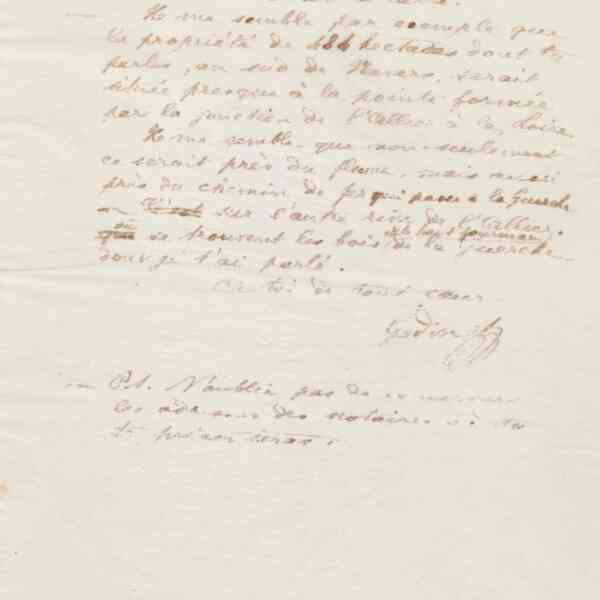 Il me semble par exemple que
la propriété de 484 hectares dont tu
parles, au sud de Nevers, serait
située presque à la pointe formée
par la jonction de l'Allier à la Loire.
Il me semble que non-seulement
ce serait près du fleuve, mais aussi
près du chemin de fer qui passe à la Guerche
C'est sur l'autre rive de l'Allier.
où se trouvent les bois de la Guerche
dont je t'ai parlé.
à toi de tout cœur
Godin
P.S. N'oublie pas de
les adresses des notaires où tu
te